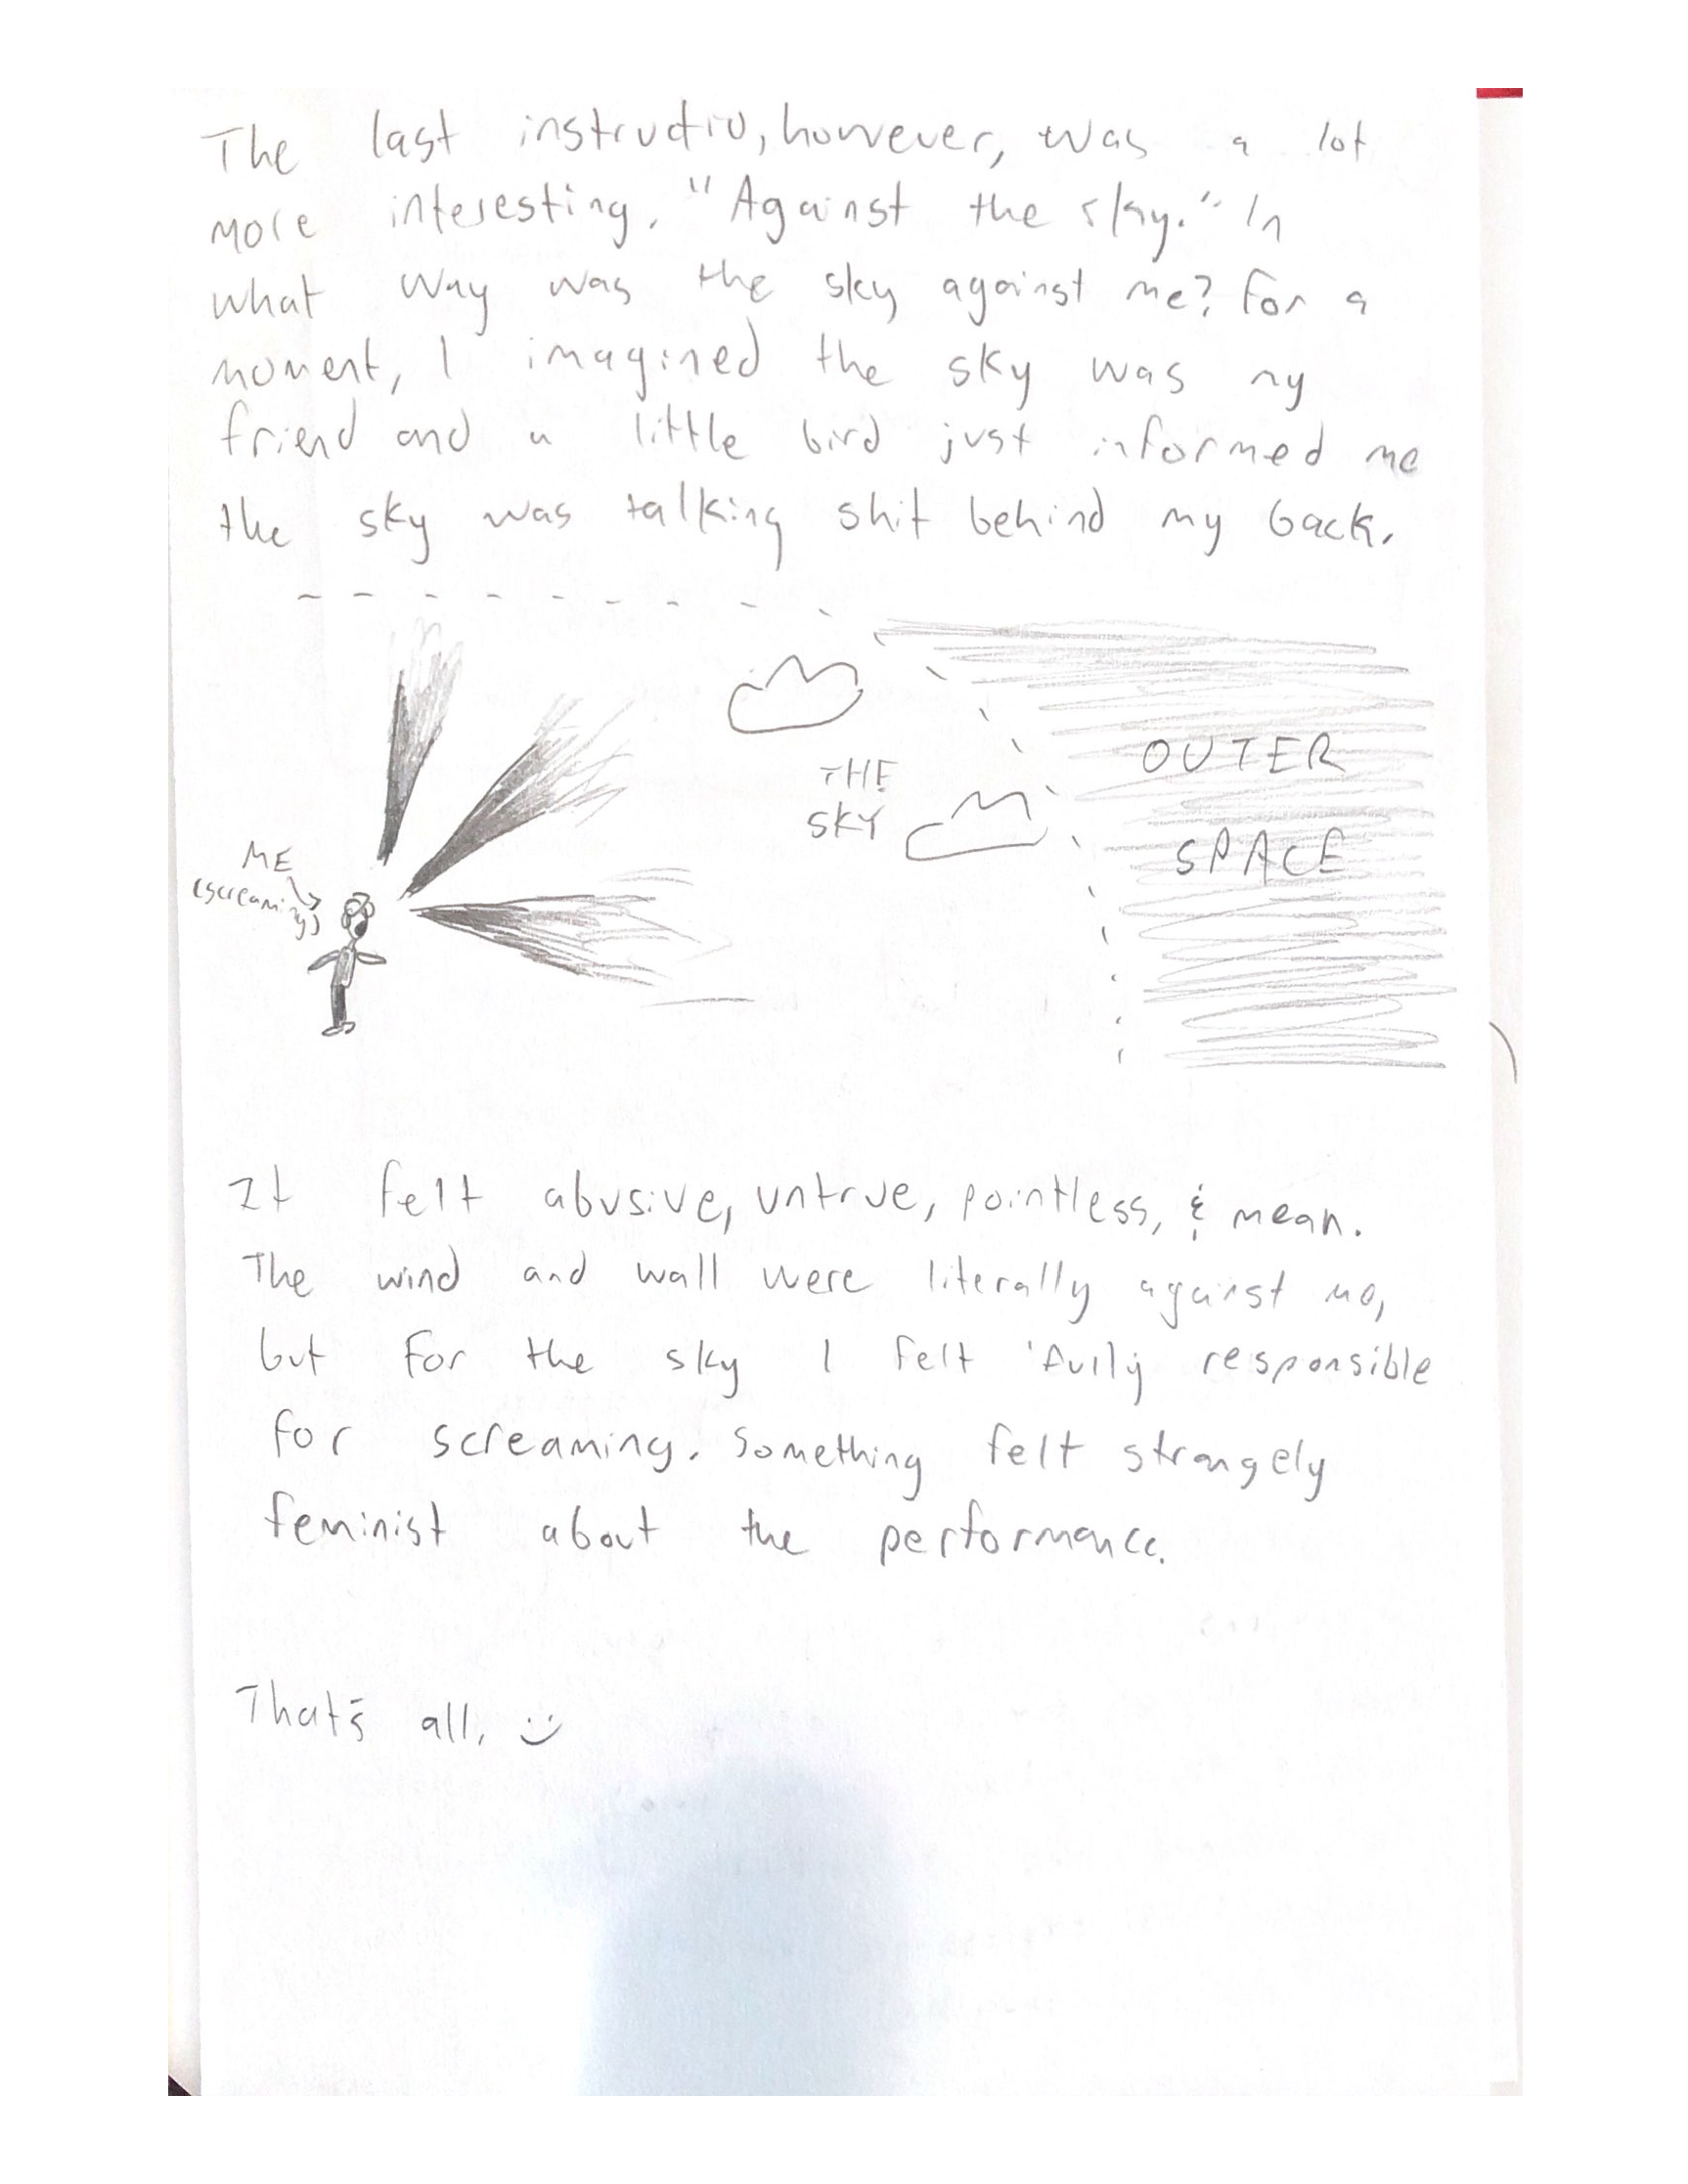 The last instructio, however, was a lot
more interesting. "Against the sky." In
what way was the sky against me? For a
moment, I imagined the sky was my
friend and a little bird just informed me
the sky was talking shit behind my back.
THE
SKY
OUTER
SPACE
ME
(screaming)
It felt abusive, untrue, pointless, & mean.
The wind and wall were literally against me,
but for the sky I felt fully responsible
for screaming. Something felt strangely
feminist about the performance.
That's all. :)